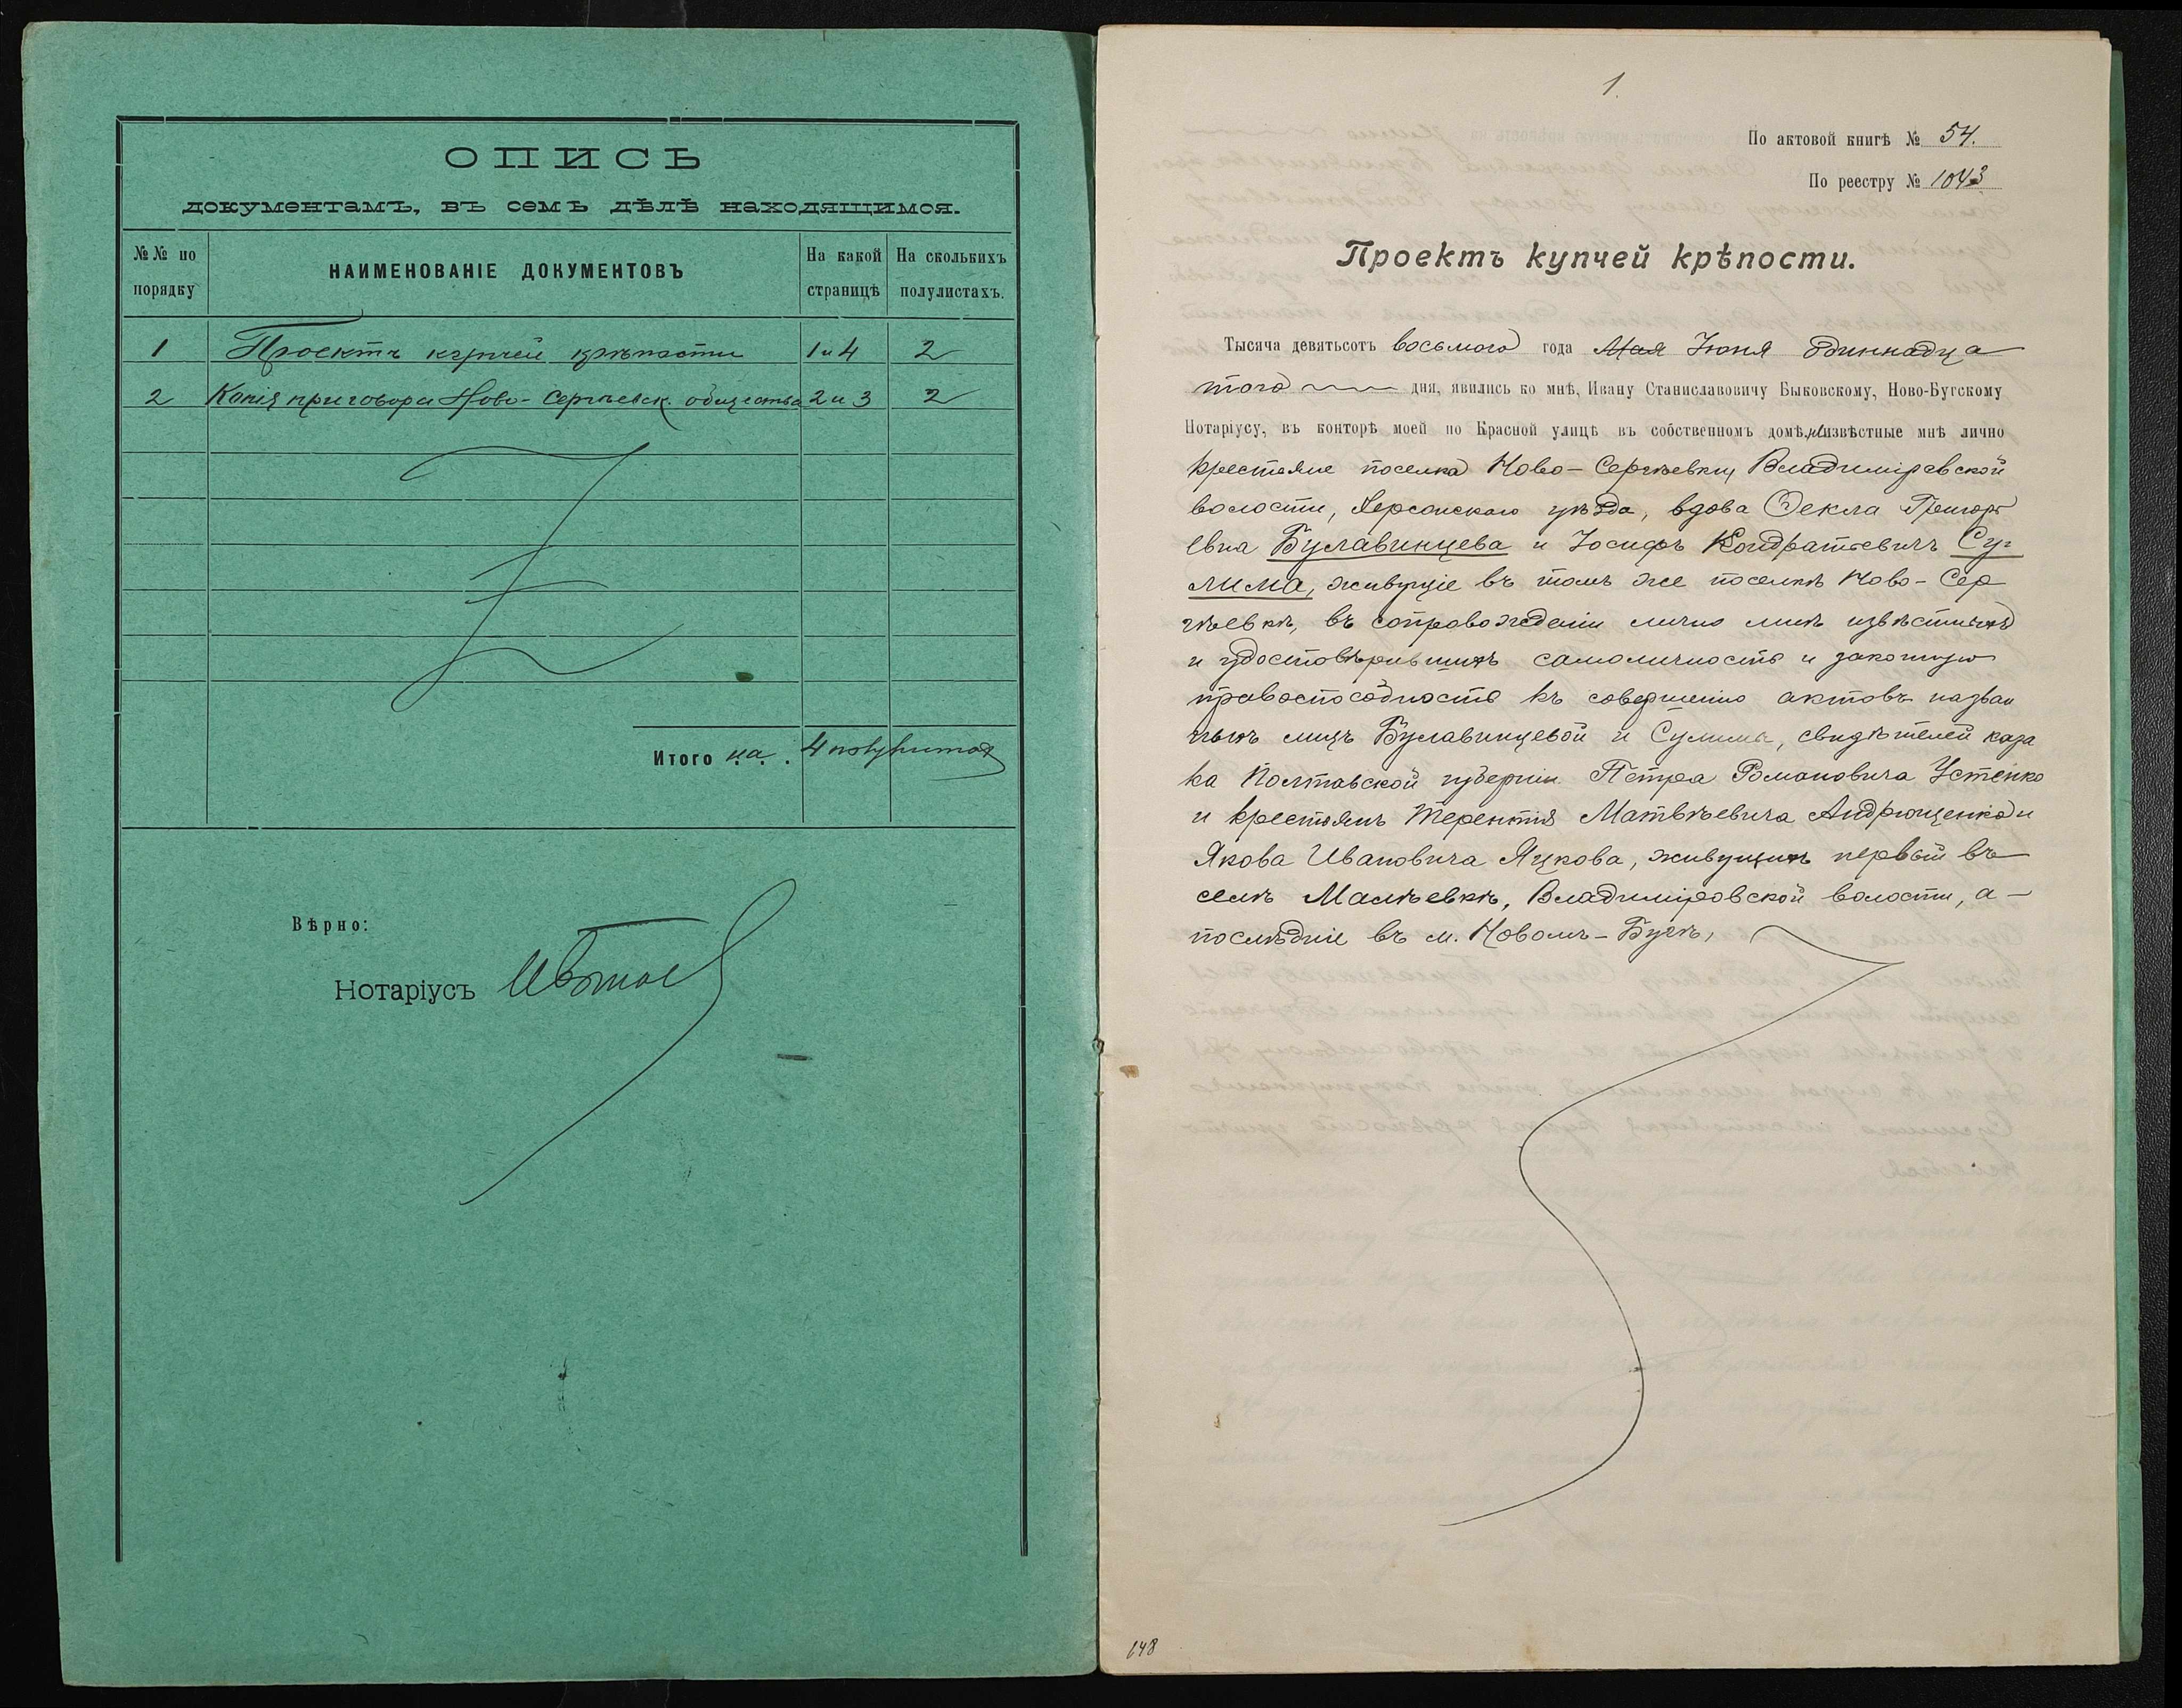 ОПИСЬ
документамъ, въ семъ дѣлѣ находящимся.
№№ по порядку
НАИМЕНОВАНІЕ ДОКУМЕНТОВЪ
На какой страницѣ
На сколькихъ полулистахъ.
1 Проектъ купчей крѣпости 1 и 4 2
2 Копія приговора Ново-Сергѣевск. общества 2 и 3 2
Итого на 4 полулистах
Вѣрно:
Нотаріусъ
1
По актовой книгѣ № 54.
По реестру № 1043
Проектъ купчей крѣпости.
Тысяча девятьсотъ восьмого года Мая Іюня одиннадца
таго дня, явились ко мнѣ, Ивану Станиславовичу Быковскому, Ново-Бугскому
Нотаріусу, въ конторѣ моей по Красной улицѣ въ собственномъ домѣ, неизвѣстные мнѣ лично
крестьяне поселка Ново-Сергѣевки, Владиміровской
волости, Херсонскаго уѣзда, вдова Ѳекла Григорь
евна Булавинцева и Іосифъ Кондратьевичъ Су-
лима, живущіе въ томъ же поселкѣ Ново-Сер
гѣевкѣ, въ сопровожденіи лично мнѣ извѣстныхъ
и удостовѣрившихъ самоличность и законную
правоспособность къ совершенію актовъ назван
ныхъ лицъ Булавинцевой и Сулимы, свидѣтелей каза
ка Полтавской губерніи Петра Романовича Устенко
и крестьянъ Терентія Матвѣевича Андрющенко и
Якова Ивановича Яцкова, живущихъ первый въ
селѣ Малѣевкѣ, Владиміровской волости, а
послѣдніе въ м. Новомъ-Бугѣ,
148